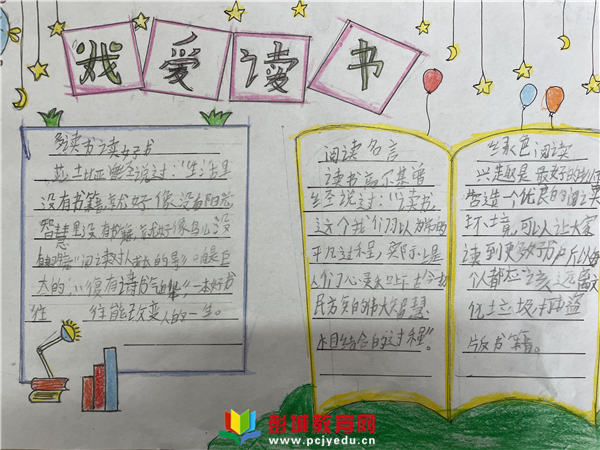 我爱读书
多读书读好书
莎士比亚曾经说过:"生活里
没有书籍就好像没有阳光
智慧里没有书籍就好像鸟儿没
大的,"腹有诗书气自华",一本好书
往往能改变人的一生。
阅读名言
读书高尔基曾
经说过:"读书,
这个我们习以为常的
平凡过程,实际上是
人们心灵和上下古今
民族的伟大智慧
相结合的过程"。
绿色阅读
兴趣是最好的
营造一个优良的阅读
环境,可以让大家
读到更多好书所以每
个人都应该远离文
化垃圾和盗
版书籍。
彭城教育网
www.pcjyedu.cn